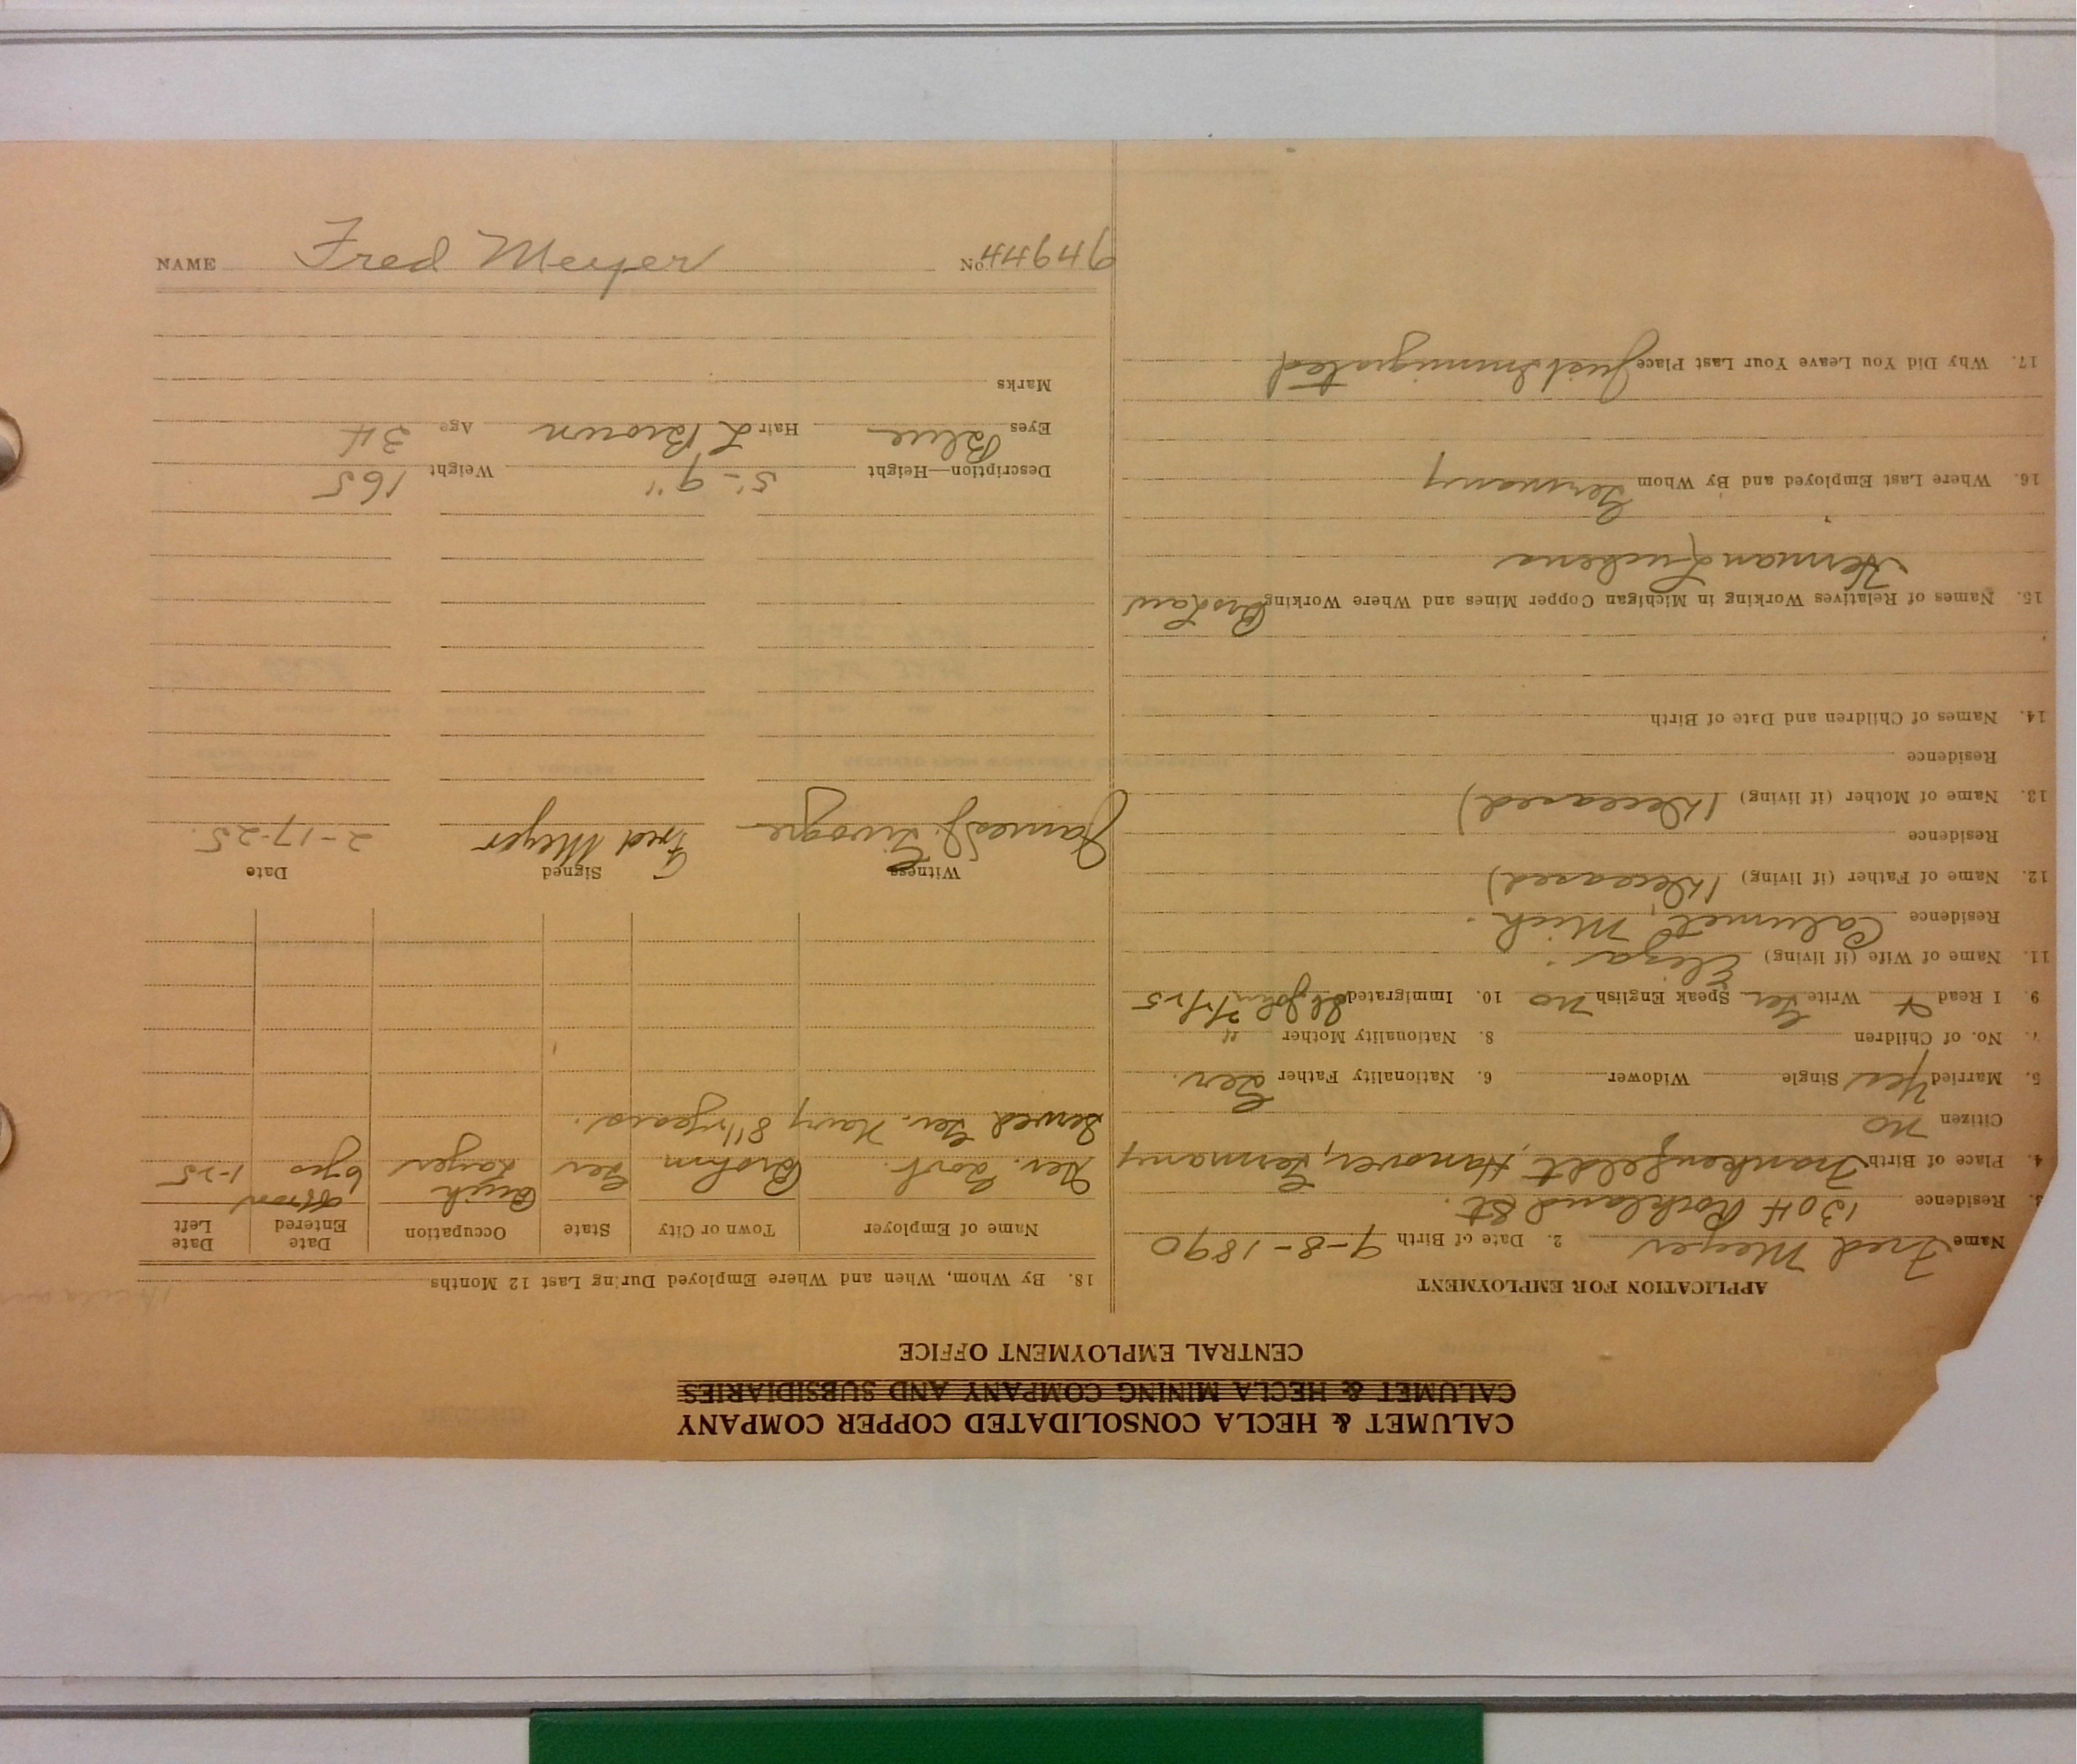 CALUMET & HECLA CONSOLIDATED COPPER COMPANY
CALUMET & HECLA MINING COMPANY AND SUBSIDIARIES
CENTRAL EMPLOYMENT OFFICE
APPLICATION FOR EMPLOYMENT
Name Fred Meyer 2. Date of Birth 9-8-1890
3. Residence 1304 Rockland St.
4. Place of Birth Frankenfeldt, Hanover, Germany
Citizen no
5. Married Yes Single Widower 6. Nationality Father Ger.
7. No. of Children 8. Nationality Mother "
9. I Read + Write Ger Speak English no 10. Immigrated St John
11. Name of Wife (if living) Eliza.
Residence Calumet, Mich.
12. Name of Father (if living) (Deceased)
Residence
13. Name of Mother (if living) (Deceased)
Residence
14. Names of Children and Date of Birth
15. Names of Relatives Working in Michigan Copper Mines and Where Working Bro Law
Herman
16. Where Last Employed and By Whom Germany
17. Why Did You Leave Your Last Place Just Immigrated
18. By Whom, When and Where Employed During Last 12 Months
Name of Employer Town or City State Occupation Date Entered Date Left
Ger. Govt. Ger Brick Layer 6 yrs 1-25
Served Ger. Navy 8 1/2 years.
Witness Signed Date
James Fred Meyer 2-17-25.
Description—Height 5'-9" Weight 165
Eyes Blue Hair L Brown Age 34
Marks
NAME Fred Meyer No 94944